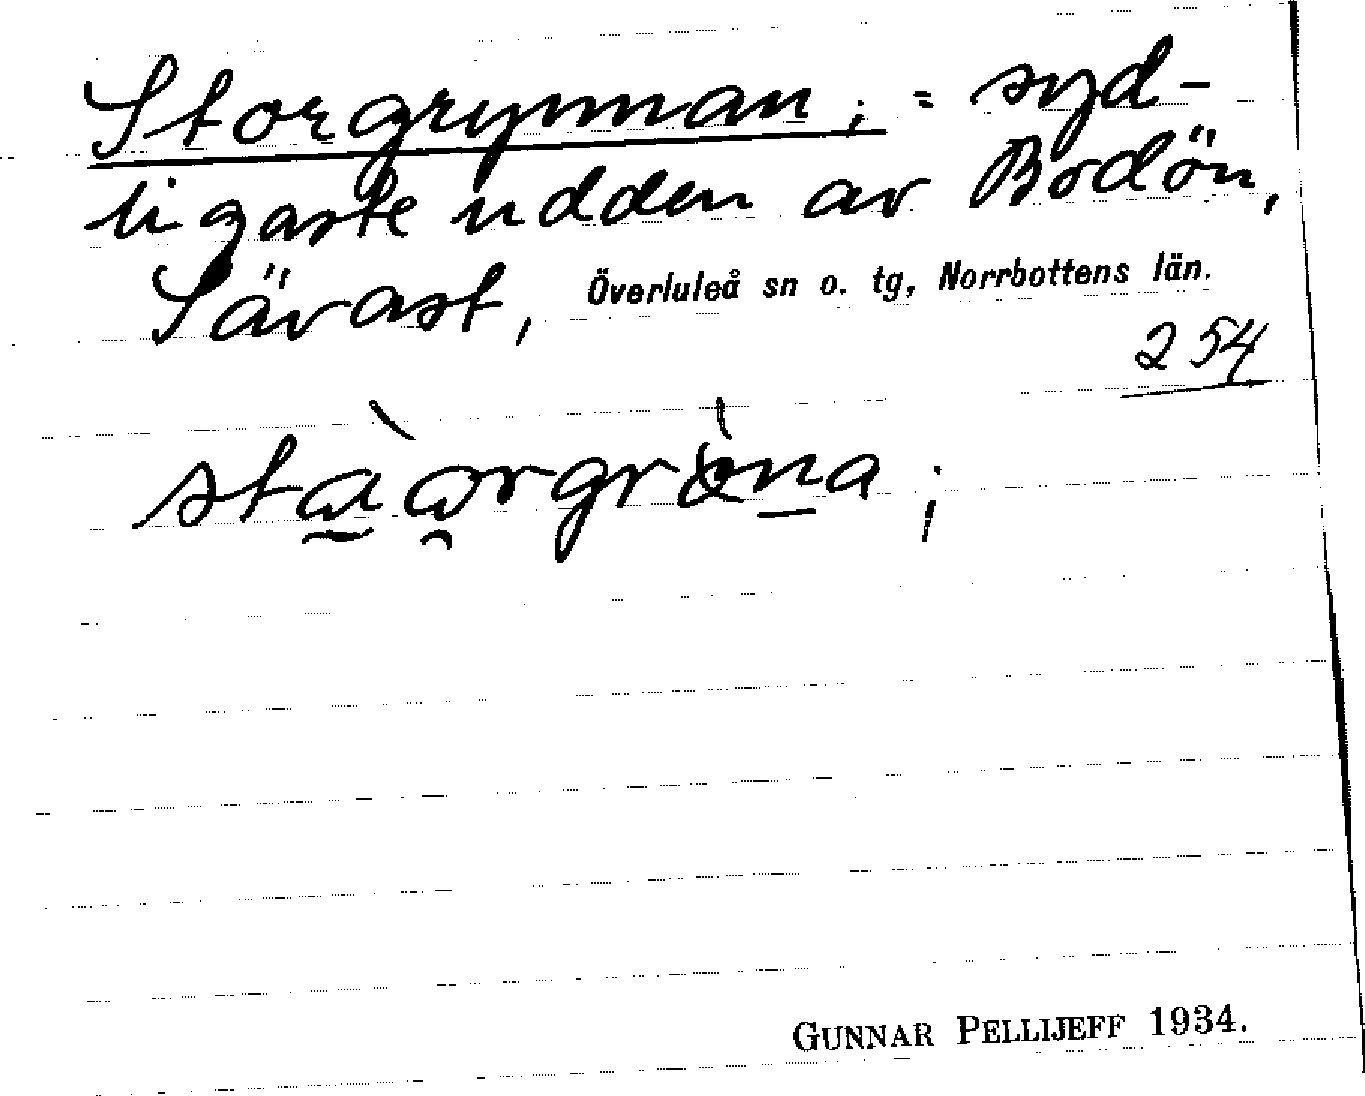 Storgrynnan; = syd-
ligaste udden av Bodön,
Sävast, Överluleå sn o. tg, Norrbottens län.
254
GUNNAR PELLIJEFF 1934.